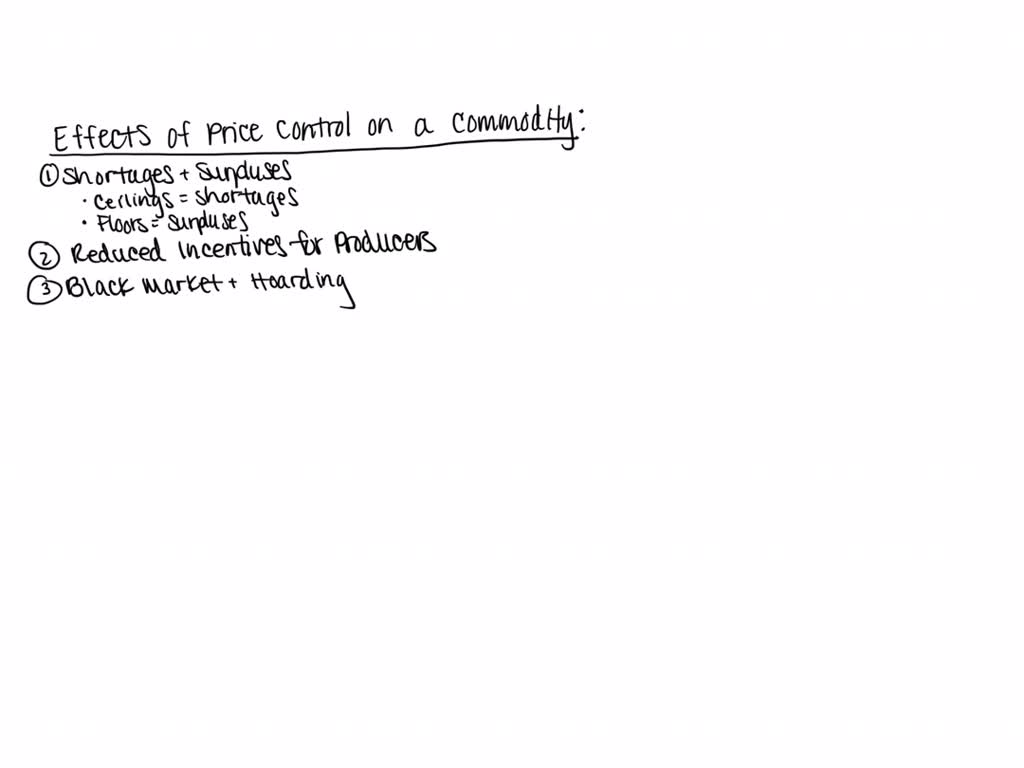 Effects of Price Control on a Commodity:
① Shortages + Surpluses
· Ceilings = shortages
· Floors = surpluses
② Reduced Incentives for Producers
③ Black Market + Hoarding